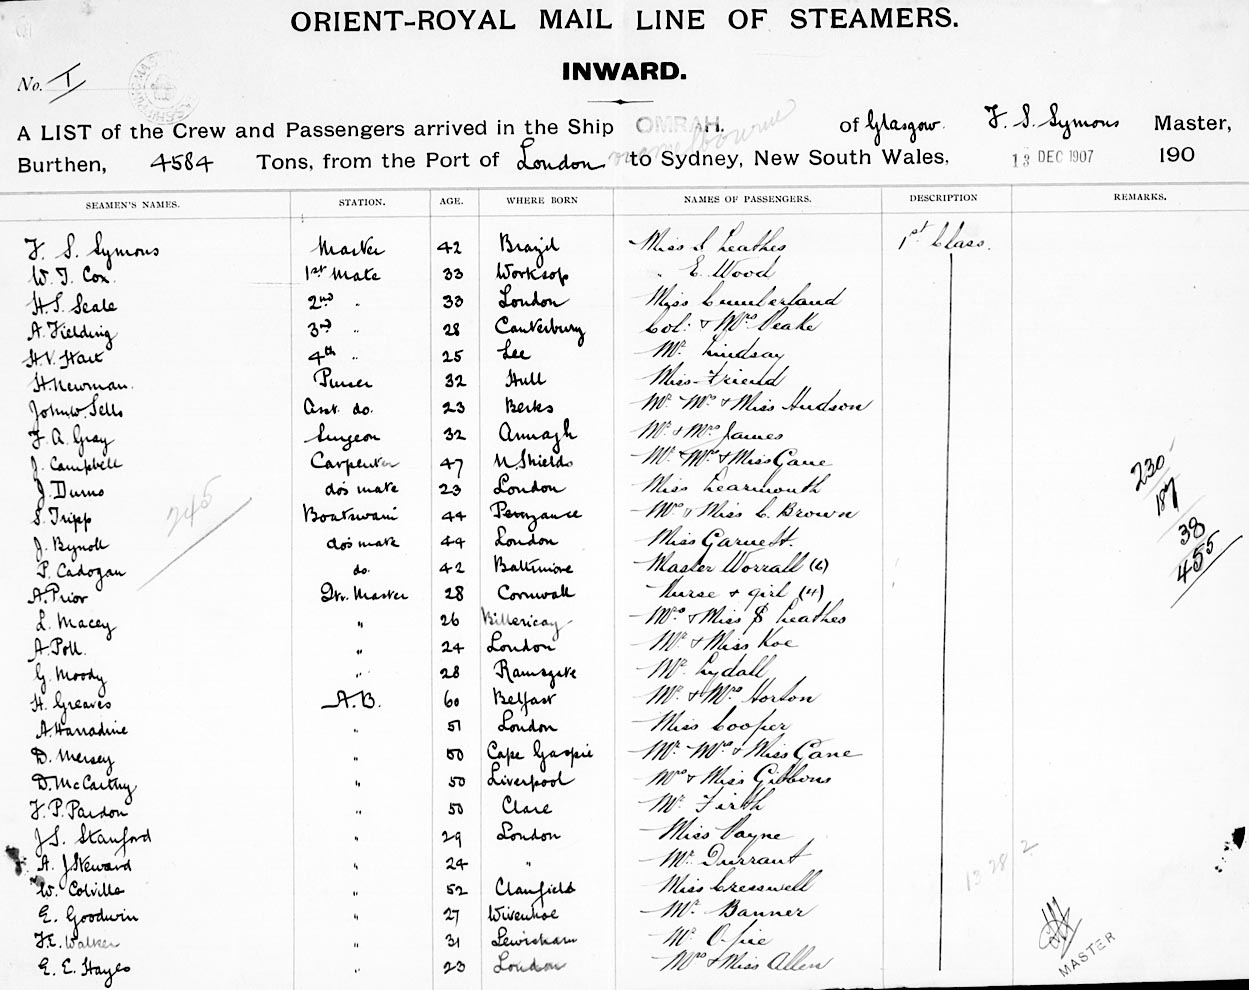 ORIENT-ROYAL MAIL LINE OF STEAMERS.
INWARD.
No. I
A LIST of the Crew and Passengers arrived in the Ship OMRAH. of Glasgow. F. S. Symons Master,
Burthen, 4584 Tons, from the Port of London via Melbourne to Sydney, New South Wales, 13 DEC 1907 190
SEAMEN'S NAMES. STATION. AGE. WHERE BORN NAMES OF PASSENGERS. DESCRIPTION REMARKS.
F. S. Symons Master 42 Brazil Miss S Leathes 1st Class.
W. T. Cox. 1st Mate 33 Worksop " E. Wood
H. S. Seale 2nd " 33 London Miss Cumberland
A. Fielding 3rd " 28 Canterbury Col: & Mrs Peake
H. V. Hart 4th " 25 Lee Mr. Lindsay
H Newman. Purser 32 Hull Miss Friend
John W. Sells Asst. do. 23 Berks Mr. Mrs & Miss Hudson
F. A. Gray Surgeon 32 Armagh Mr. & Mrs James
J. Campbell Carpenter 47 N. Shields Mr. & Mrs & Miss Cane
J. Durno do's mate 23 London Miss Learmouth
S. Tripp Boatswain 44 Penzance Mrs & Miss C. Brown
J. Bynoll do's mate 44 London Miss Garnett.
P. Cadogan do. 42 Baltimore Master Worrall (6)
A. Prior Qtr. Master 28 Cornwall Nurse & girl (4)
L. Macey " 26 Billericay Mrs & Miss S Leathes
A. Poll. " 24 London Mr & Miss Koe
G. Moody " 28 Ramsgate Mr. Lydall
H. Greaves A.B. 60 Belfast Mr. & Mrs Horton
A. Harradine " 51 London Miss Cooper
D. Mersey " 50 Cape Gaspie Mr. Mrs & Miss Cane
D. McCarthy " 50 Liverpool Mrs & Miss Gibbons
F. P. Pardon " 50 Clare Mr. Firth
J. S. Stanford " 29 London Miss Payne
A. J Steward " 24 " Mr. Durrant
W. Colville " 52 Clanfield Miss Cresswell
E. Goodwin " 27 Wivenhoe Mr. Banner
F. E. Walker " 31 Lewisham Mr.
E. E. Hayes " 23 London Mrs & Miss Allen
245
230
187
38
455
13 28 2
MASTER